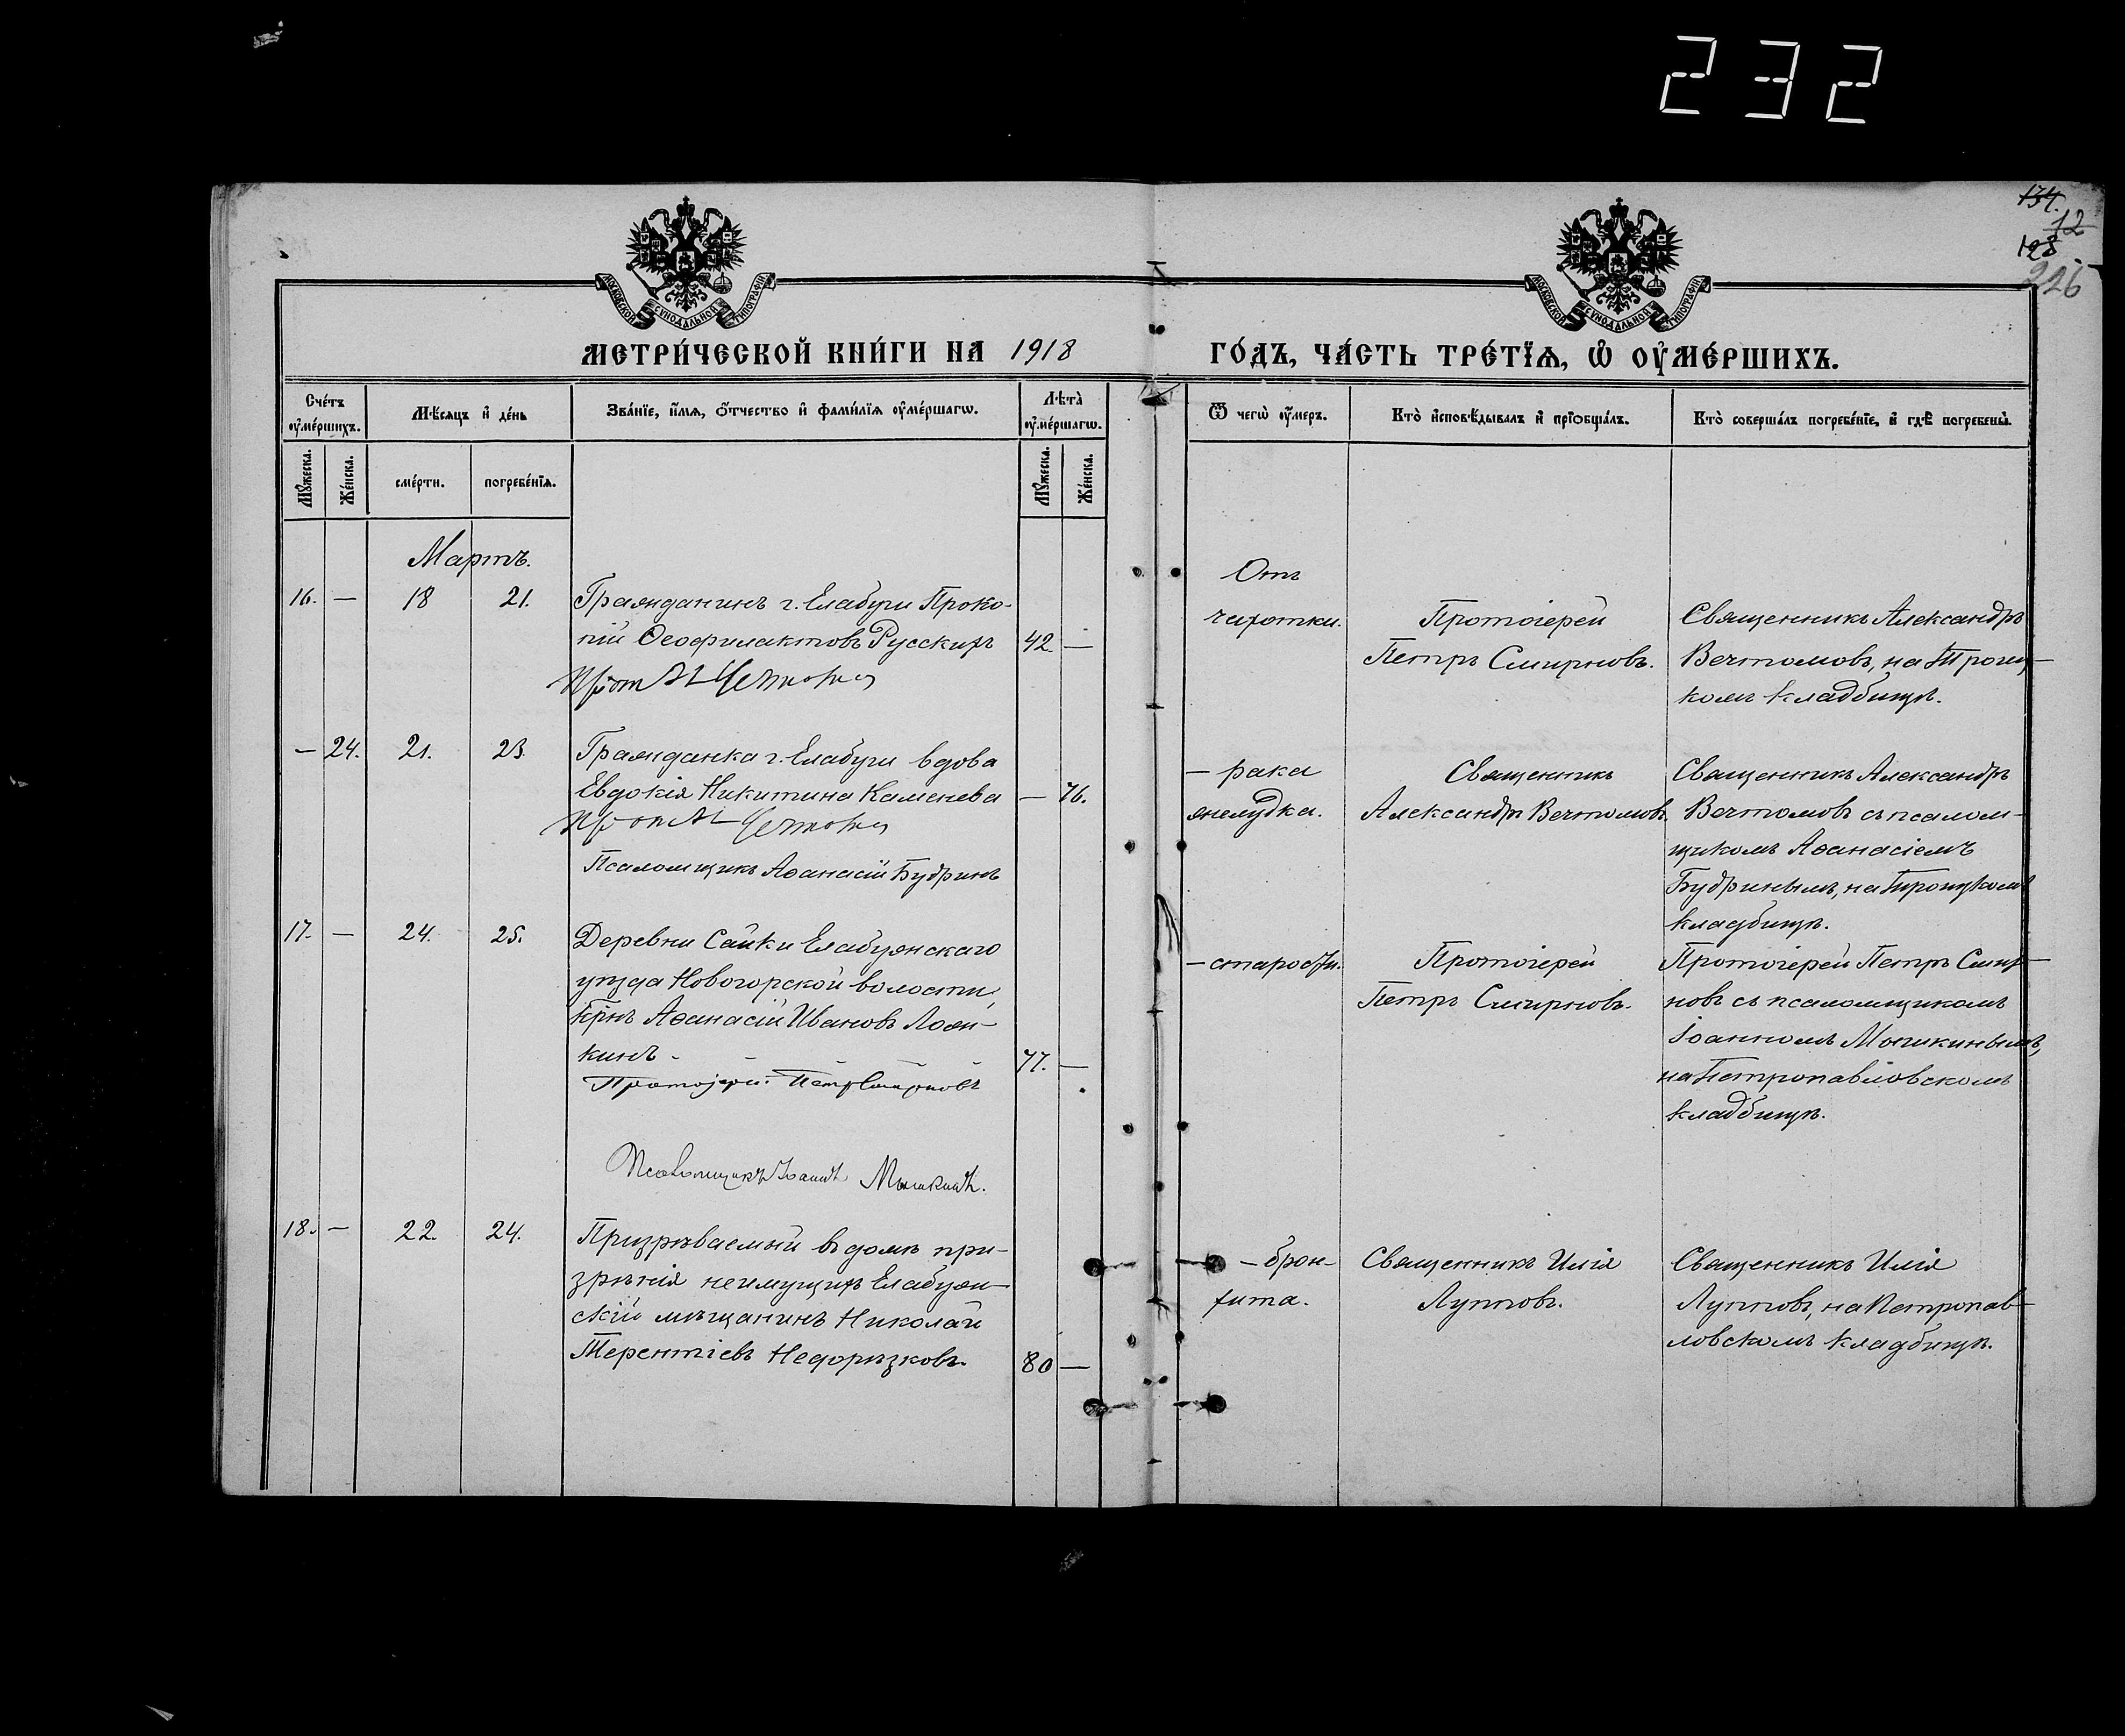 232
134.
12
128
226
МОСКОВСКОЙ СѴНОДАЛЬНОЙ ТИПОГРАФІИ
МОСКОВСКОЙ СѴНОДАЛЬНОЙ ТИПОГРАФІИ
МЕТРИ́ЧЕСКОЙ КНИ́ГИ НА 1918 ГО́ДЪ, ЧА́СТЬ ТРЕ́ТЇѦ, Ѡ҆ ОУ҆МЕ́РШИХЪ.
Сче́тъ оу҆ме́ршихъ.
Мѣ́сяцъ и҆ де́нь
Зва́нїе, и҆́мѧ, ѻ҆́тчество и҆ фами́лїѧ оу҆ме́ршагѡ.
Лѣ́та оу҆ме́ршагѡ.
Ѿ чегѡ̀ оу҆́меръ.
Кто̀ и҆сповѣ́дывалъ и҆ прїѻбща́лъ.
Кто̀ соверша́лъ погребе́нїе, и҆ гдѣ̀ погребены̀.
Мꙋ́жеска.
Же́нска.
сме́рти.
погребе́нїѧ.
Мꙋ́жеска.
Же́нска.
Мартъ.
16. — 18 21.
Гражданинъ г. Елабуги Проко-
пій Ѳеофилактовъ Русскихъ 42. —
Прот
Отъ
чахотки.
Протоіерей
Петръ Смирновъ.
Священникъ Александръ
Вечтомовъ, на Троиц-
комъ кладбищѣ.
— 24. 21. 23.
Гражданка г. Елабуги вдова
Евдокія Никитина Каменева — 76.
Прот
Псаломщикъ Аѳанасій Будринъ
— рака
желудка.
Священникъ
Александръ Вечтомовъ.
Священникъ Александръ
Вечтомовъ съ псалом-
щикомъ Аѳанасіемъ
Будринымъ, на Троицкомъ
кладбищѣ.
17. — 24. 25.
Деревни Сайки Елабужскаго
уѣзда Новогорской волости,
кр̃нъ Аѳанасій Ивановъ Лож-
кинъ. 77. —
Протоіерей Петръ Смирновъ
Псаломщикъ Іоаннъ Мышкинъ.
— старости.
Протоіерей
Петръ Смирновъ.
Протоіерей Петръ Смир-
новъ съ псаломщикомъ
Іоанномъ Мышкинымъ,
на Петропавловскомъ
кладбищѣ.
18. — 22. 24.
Призрѣваемый въ домѣ при-
зрѣнія неимущихъ Елабуж-
скій мѣщанинъ Николай
Терентіевъ Недорѣзковъ. 80 —
— брон-
хита.
Священникъ Илія
Лупповъ.
Священникъ Илія
Лупповъ, на Петропав-
ловскомъ кладбищѣ.